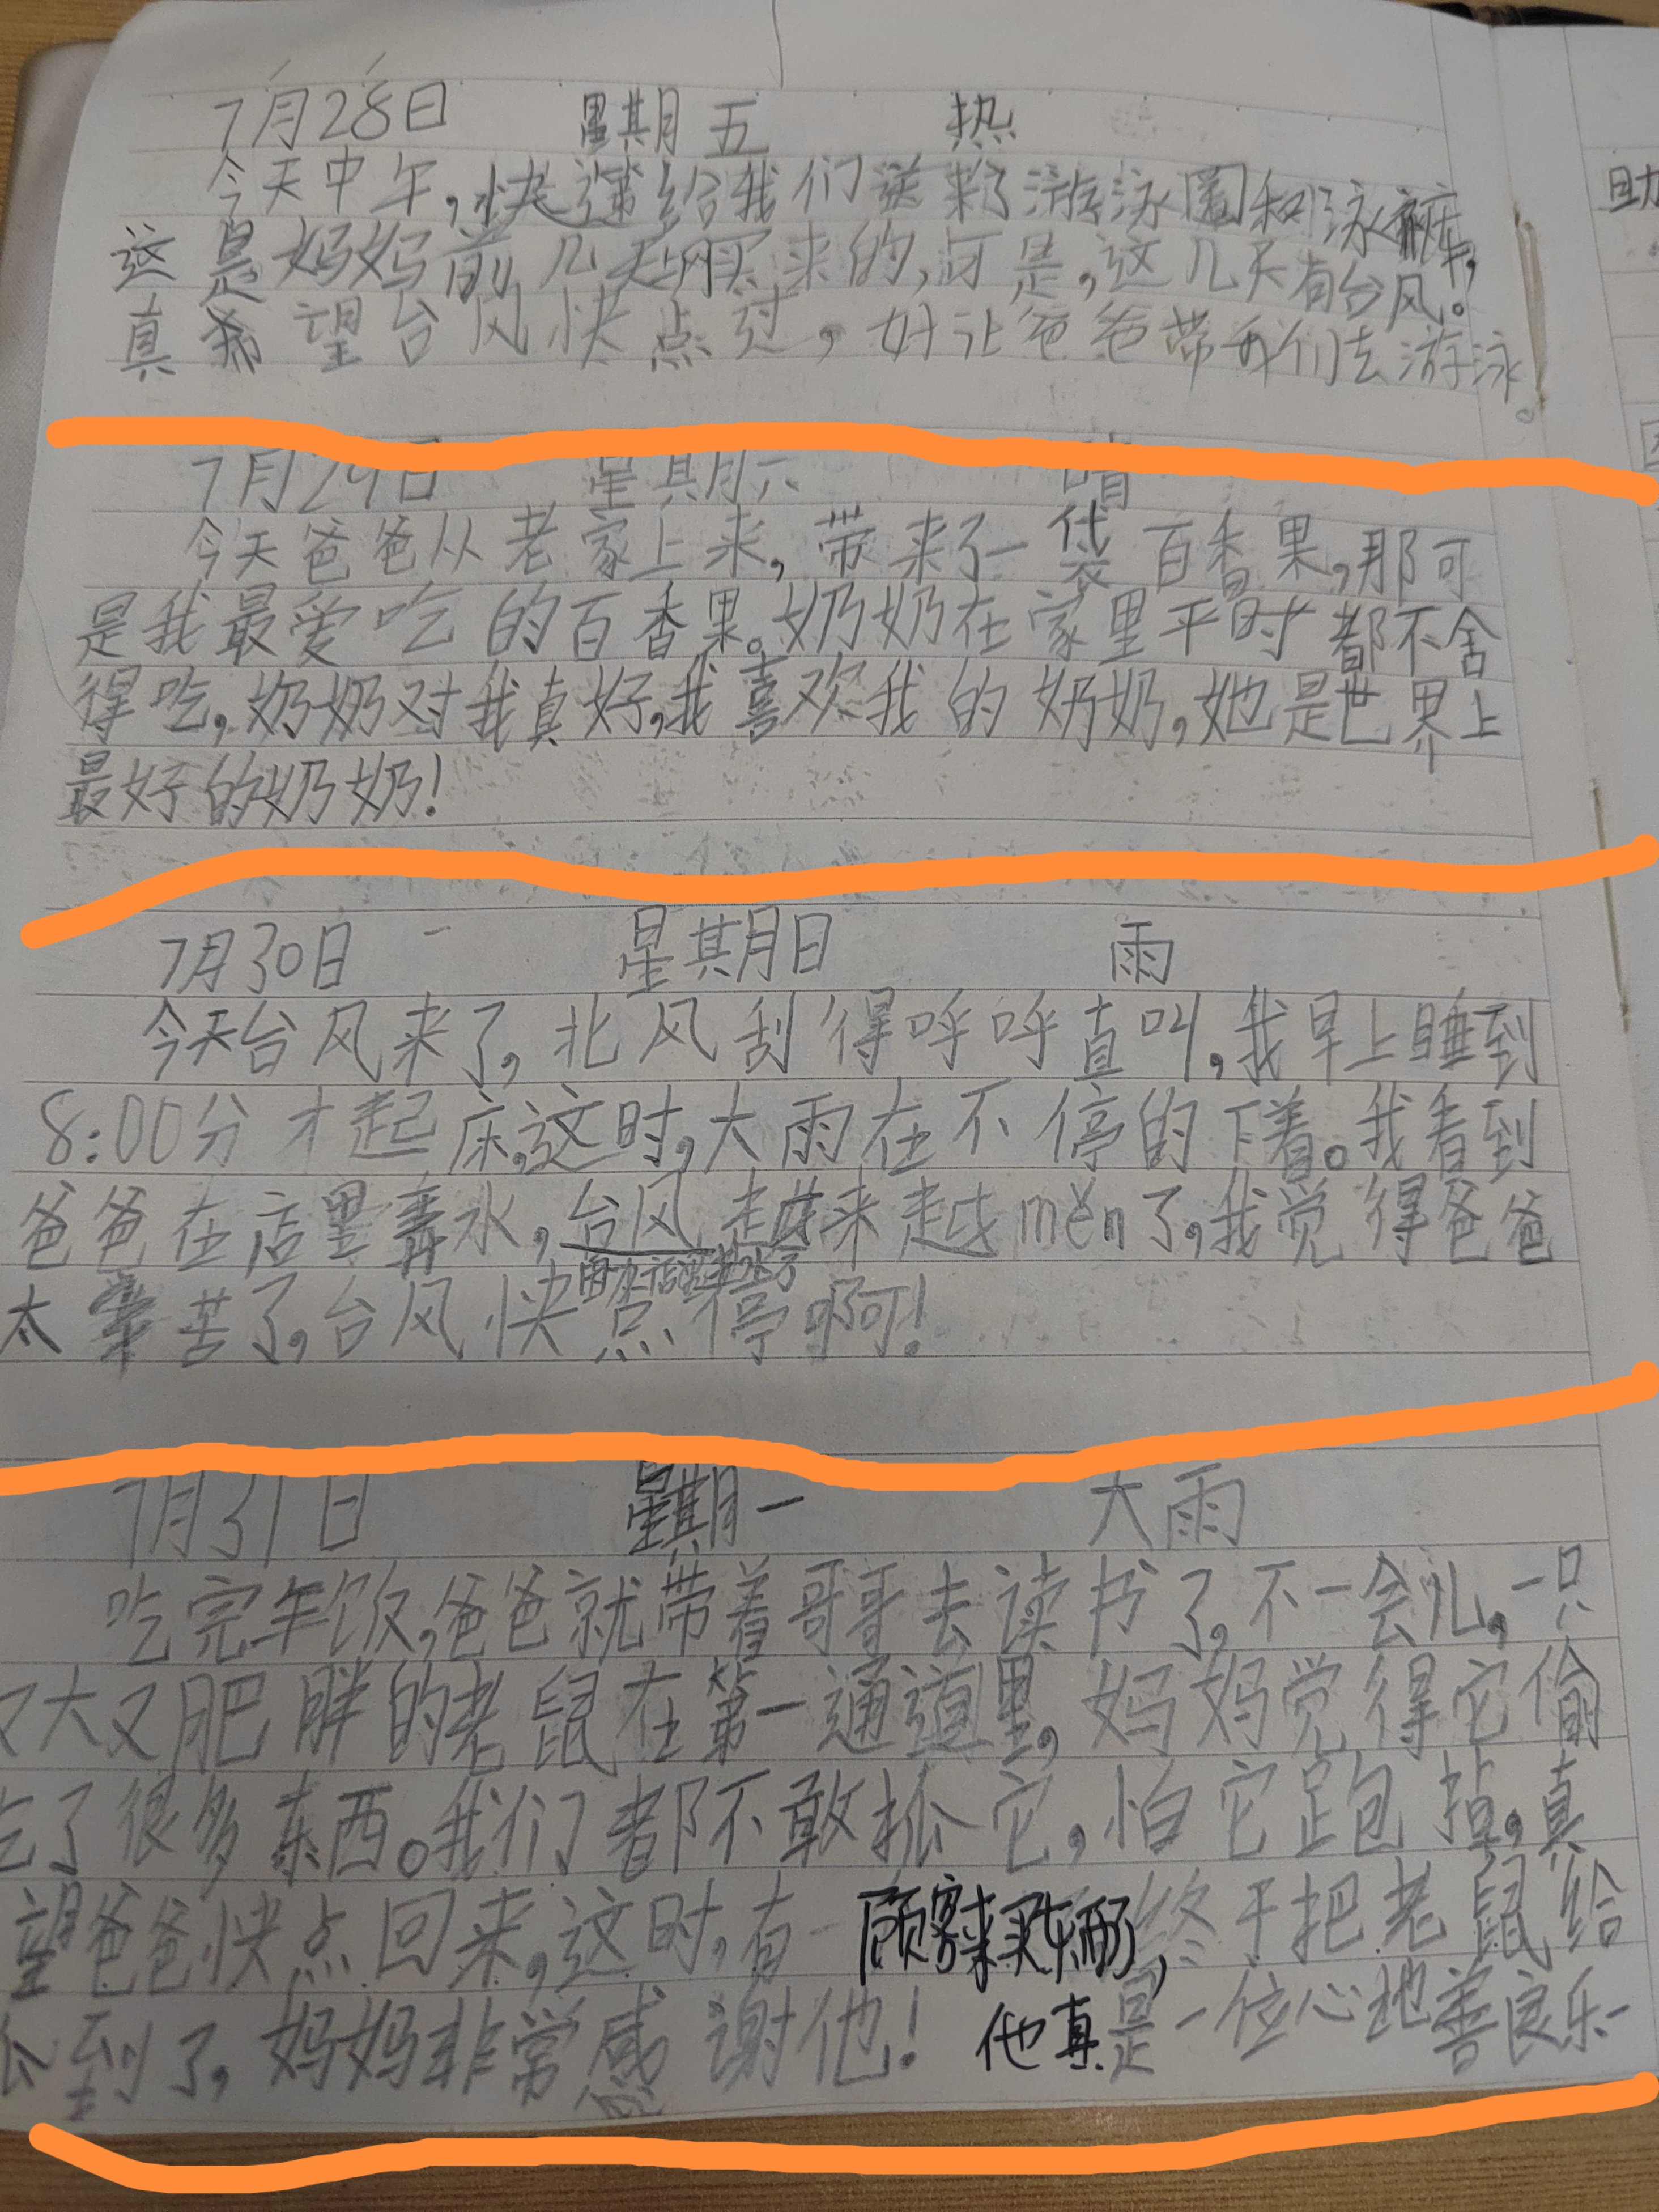 7月28日 星期五 热
今天中午,快递给我们送来了游泳圈和泳裤,
这是妈妈前几天网买来的,可是,这几天有台风。
真希望台风快点过,好让爸爸带我们去游泳。
7月29日 星期六 晴
今天爸爸从老家上来,带来了一袋百香果,那可
是我最爱吃的百香果。奶奶在家里平时都不舍
得吃,奶奶对我真好,我喜欢我的奶奶,她是世界上
最好的奶奶!
7月30日 星期日 雨
今天台风来了,北风刮得呼呼直叫,我早上睡到
8:00分才起床,这时,大雨在不停的下着。我看到
爸爸在店里弄水,台风越来越měn了,我觉得爸爸
太辛苦了,台风快点停啊!
7月31日 星期一 大雨
吃完午饭,爸爸就带着哥哥去读书了,不一会儿,一只
又大又肥胖的老鼠在第一通道里,妈妈觉得它偷
吃了很多东西。我们都不敢抓它,怕它跑掉,真
望爸爸快点回来,这时,有一顾客来买东西,终于把老鼠给
抓到了,妈妈非常感谢他!他真是一位心地善良乐
助